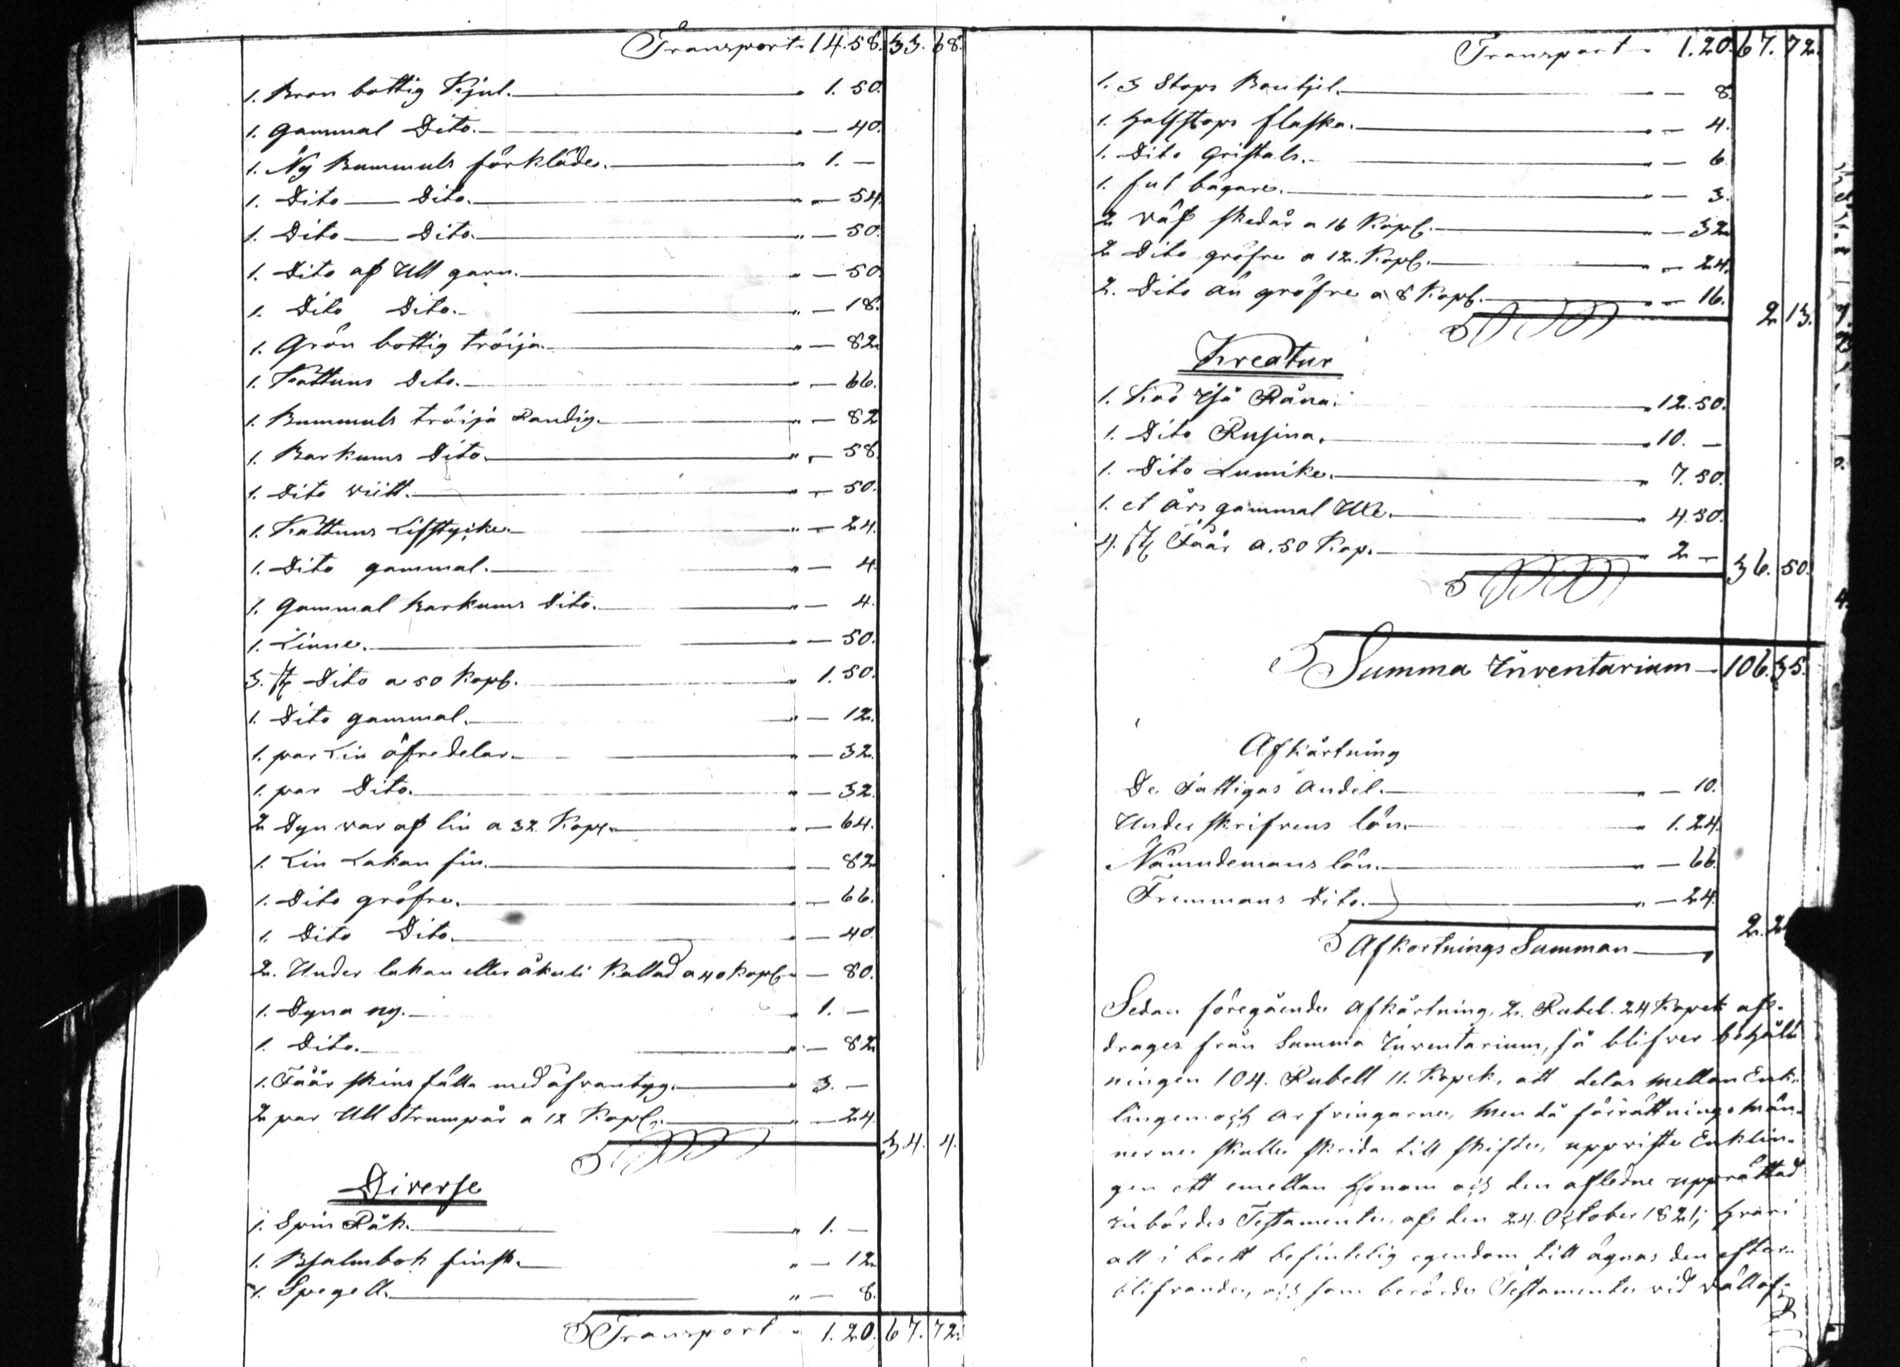 Transport 14.58. 33. 68.
1. Bron bottig Kjul. 1. 50.
1. gammal Dito. — 40.
1. Ny Bummuls förkläde. 1. —
1. Dito — Dito. — 54.
1. Dito — Dito. — 50.
1. Dito af Ull garn. — 50.
1. Dito Dito. — 18.
1. Grön bottig tröija. — 82.
1. Kattuns Dito. — 66.
1. Bummuls tröija Randig. — 82
1. Barkums Dito. — 58.
1. Dito viitt. — 50.
1. Kattuns Lifstycke. — 24.
1. Dito gammal. — 4.
1. gammal Barkums Dito. — 4.
1. Linne. — 50.
3. st Dito a 50 Kopk. 1. 50.
1. Dito gammal. — 12.
1. par Lin öfredelar. — 32.
1. par Dito. — 32.
2 Dyn var af lin a 32 Kopk. — 64.
1. Lin Lakan fin. — 82
1. Dito gröfre. — 66.
1. Dito Dito. — 40.
2. Under lakan eller åkuli Kallad a 40 Kopk — 80.
1. Dyna ny. 1. —
1. Dito. — 82
1. Fåår skins fälla med öfvantyg. 3. —
2 par Ull Strumpår a 12 Kopk. — 24.
34. 4.
Diverse
1. Spin Råk. 1. —
1. Psalmbok finsk. — 12
1. Spegell. — 8.
Transport 1. 20. 67. 72.
Transport 1. 20. 67. 72.
1. 3 Stops Boutjel. — 8.
1. Halfstops flaska. — 4.
1. Dito Cristals. — 6
1. ful bägare. — 3.
2 väf skedår a 16 Kopk. — 32
2 Dito gröfre a 12. Kopk. — 24.
2. Dito än gröfre a 8 Kopk. — 16.
2. 13.
Kreatur
1. Koo Råna. 12. 50.
1. Dito Rusina. 10. —
1. Dito Lumike. 7. 50.
1. et års gammal 4. 50.
4. st Fåår a. 50 Kop. 2 —
36. 50.
Summa Inventarium 106. 35.
Afkårtning
De Fattigas Andel. — 10.
Underskrifvens lön. 1. 24.
Nämndemans lön. — 66
Fremmans Dito. — 24.
2. 2
Afkortnings Summan
Sedan föregående Afkårtning, 2. Rubel. 24 Kopek af-
drages från Summa Inventarium, så blifver behåll
ningen 104. Rubell 11. Kopek, att delas mellan Enk-
lingen och Arfvingarne, Men då förrättningsmän-
nerne skulle skrida till skifte, uppviste Enklin-
gen ett emellan Honom och den aflidne upprättad
Inbördes Testamente, af den 24. October 1821, Hvari
all i boett befintelig egendom till ägnas den efter-
blifvande, och som berörde Testamente vid